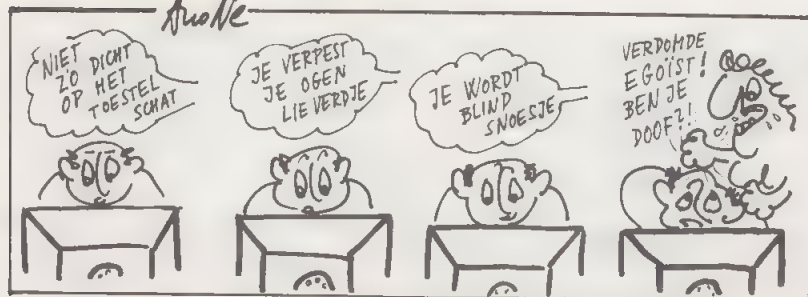 AnoNe
NIET
ZO DICHT
OP HET
TOESTEL
SCHAT
JE VERPEST
JE OGEN
LIEVERDJE
JE WORDT
BLIND
SNOESJE
VERDOMDE
EGOÏST!
BEN JE
DOOF?!